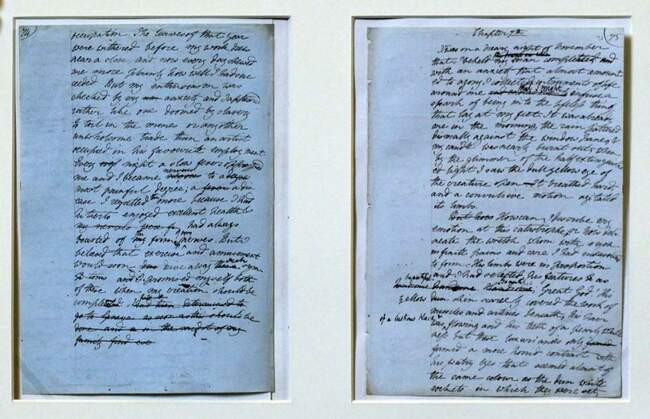 74
occupation. The leaves of that year
were withered before my work drew
near a close and now every day shewed
me more plainly how well I had suc
ceeded But my enthusiasm was
checked by my anxiety and I appeared
rather like one doomed by slavery
to toil in the mines or any other
unwholsome trade than an artist
occupied in his favourite employment
Every night a slow fever oppressed
nervous
me and I became to a
most painful degree; a
I regretted the more because I had
hitherto enjoyed excellent health &
had always
boasted of the firmness of my nerves. But I
beleived that exercise and amusement
would soon drive away
and I promised myself both
of these when my creation should be
completed
Chapter 7th
75
It was on a dreary night of November
that I beheld my man completed and
with an anxiety that almost amount
ed to agony, I collected instruments of life
around me
spark of being into the lifeless thing
that lay at my feet. It was already
one in the morning, the rain pattered
dismally against the window panes &
my candle was nearly burnt out, when
by the glimmer of the half extinguish
ed light I saw the dull yellow eye of
the creature open It breathed hard,
and a convulsive motion agitated
its limbs.
But how How can I describe my
emotion at this catastrophe; or how deli
neate the wretch whom with such
infinite pains and care I had endeavoured
to form. His limbs were in proportion
and I had selected his features as
handsome Great God! His
yellow skin scarcely covered the work of
muscles and arteries beneath; his hair
of a lustrous black &
was flowing and his teeth of a pearly white
ness but these luxuriances only
formed a more horrid contrast with
his watry eyes that seemed almost of
the same colour as the dun white
sockets in which they were set,